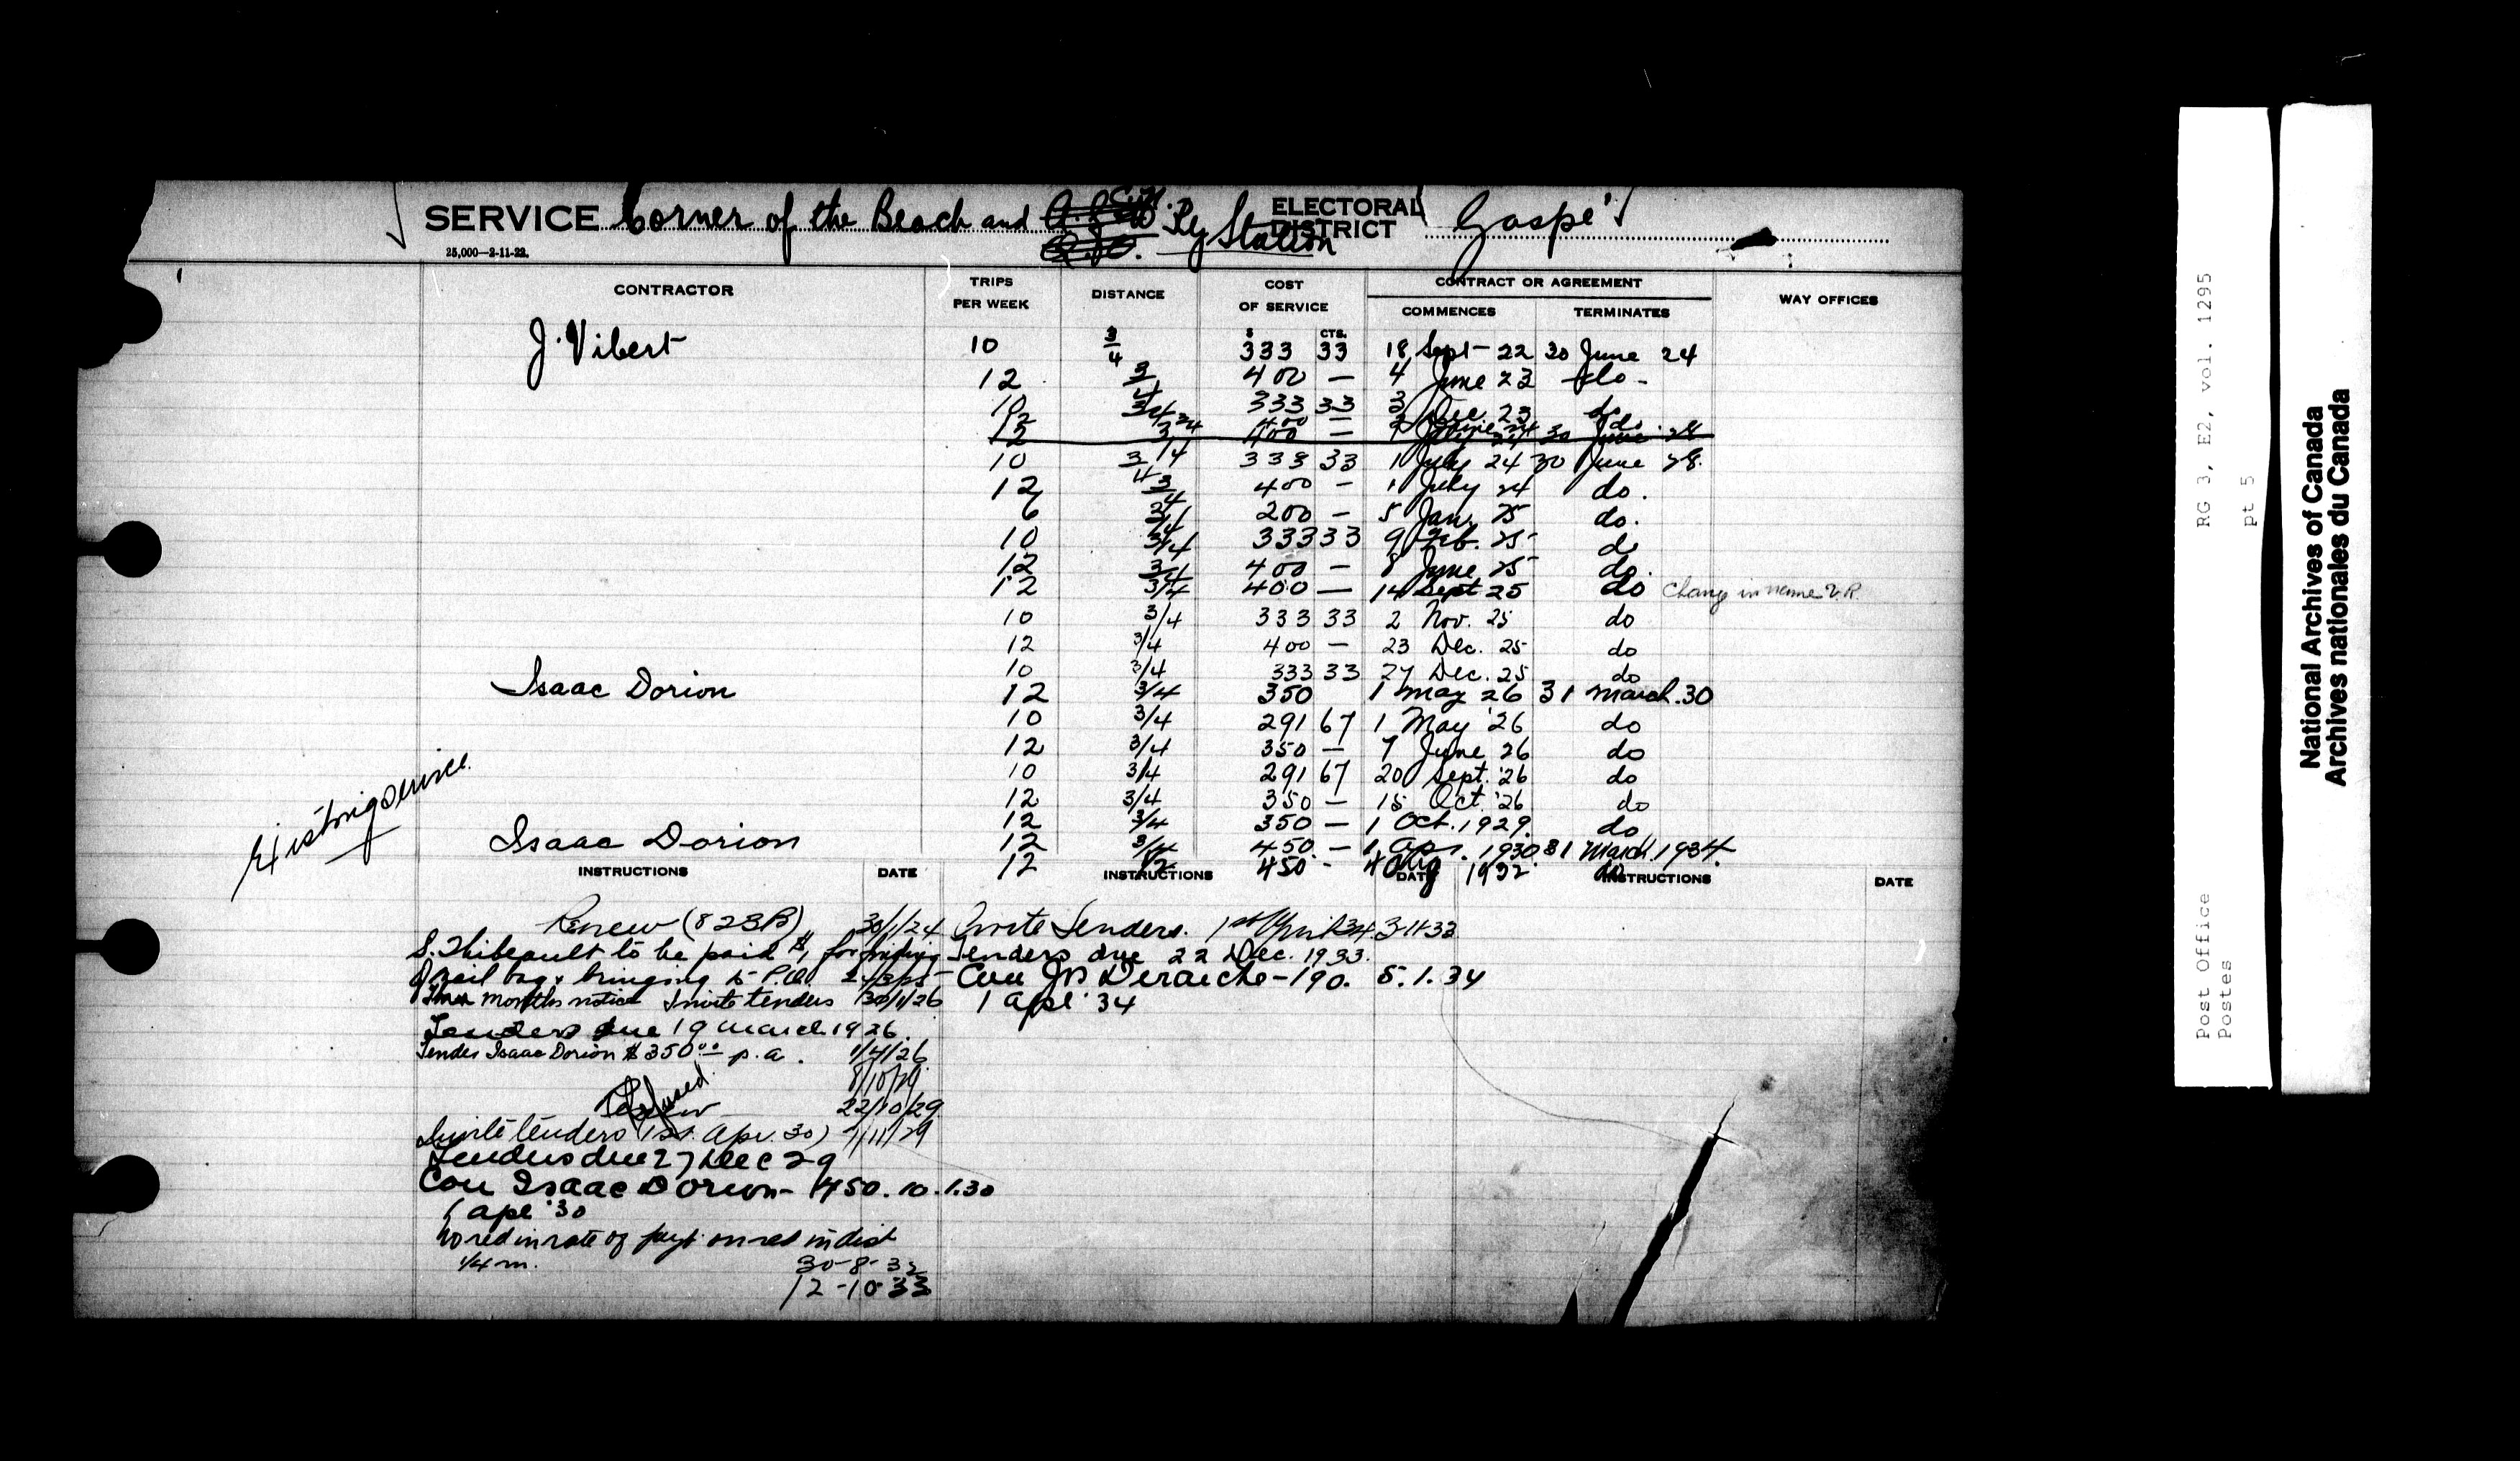 SERVICE Corner of the Beach and C.N. Ry Station ELECTORAL DISTRICT Gaspé
25,000—2-11-22.
CONTRACTOR TRIPS PER WEEK DISTANCE COST OF SERVICE CONTRACT OR AGREEMENT WAY OFFICES
COMMENCES TERMINATES
$ CTS.
J. Vibert 10 3/4 333 33 18 Sept 22 30 June 24
12 3/4 400 — 4 June 23 do -
10 3/4 333 33 3 Dec. 23 do
12 3/4 400 — June 24 do
12 3/4 400 — 1 July 24 30 June 28
10 3/4 333 33 1 July 24 30 June 28.
12 3/4 400 - 1 July 24 do.
6 3/4 200 - 5 Jan. 25 do.
10 3/4 333 33 9 Feb. 25 do
12 3/4 400 - 8 June 25 do.
12 3/4 400 — 14 Sept 25 do Change in name
10 3/4 333 33 2 Nov. 25 do
12 3/4 400 — 23 Dec. 25 do
10 3/4 333 33 27 Dec. 25 do
Isaac Dorion 12 3/4 350 1 May 26 31 March. 30
10 3/4 291 67 1 May '26 do
12 3/4 350 — 7 June 26 do
10 3/4 291 67 20 Sept. '26 do
12 3/4 350 — 15 Oct. '26 do
12 3/4 350 — 1 Oct. 1929. do
Existing service
Isaac Dorion 12 3/4 450 — 1 Apr. 1930 31 March 1934
12 1/2 450 - 4 Aug 1932 do
INSTRUCTIONS DATE INSTRUCTIONS DATE INSTRUCTIONS DATE
Renew (823B) 30/1/24
S. Thibeault to be paid for
mail bag & bringing to P.O.
months notice Invite tenders 30/1/26
Tenders due 19 March 1926.
Tender Isaac Dorion $350.00 p.a. 1/4/26
8/10/29
Refused
Renew 22/10/29
Invite tenders (1st. Apr. 30) 7/11/29
Tenders due 27 Dec 29
Con Isaac Dorion - 450. 10.1.30
1 apl '30
No red in rate of payt on red in dist
1/4 m. 30-8-32
12-10-33
Invite Tenders. 1st April 34. 3-11-33
Tenders due 22 Dec. 1933.
Con Jos Deraiche - 190. 5.1.34
1 apl '34
RG 3, E2, vol. 1295
pt 5
Post Office
Postes
National Archives of Canada
Archives nationales du Canada